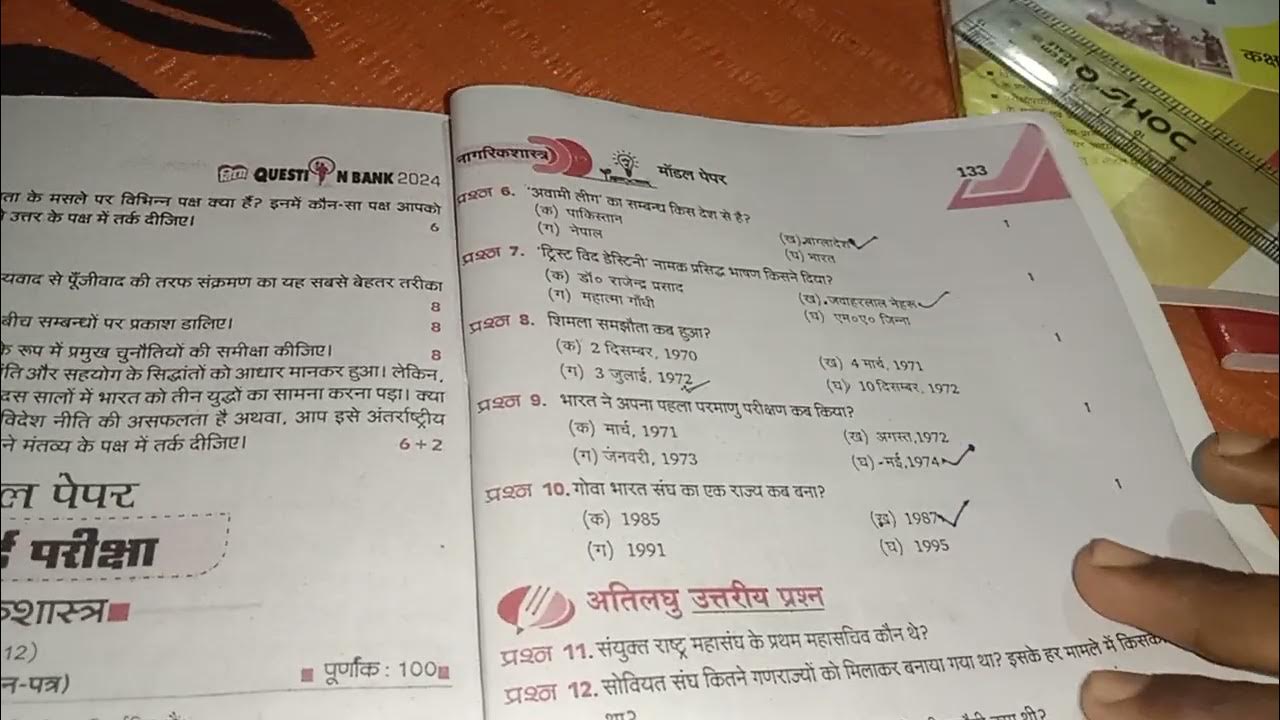 QUESTION BANK 2024
ता के मसले पर विभिन्न पक्ष क्या हैं? इनमें कौन-सा पक्ष आपको
उत्तर के पक्ष में तर्क दीजिए।
6
यवाद से पूँजीवाद की तरफ संक्रमण का यह सबसे बेहतर तरीका
8
बीच सम्बन्धों पर प्रकाश डालिए।
8
के रूप में प्रमुख चुनौतियों की समीक्षा कीजिए।
8
ति और सहयोग के सिद्धांतों को आधार मानकर हुआ। लेकिन,
दस सालों में भारत को तीन युद्धों का सामना करना पड़ा। क्या
विदेश नीति की असफलता है अथवा, आप इसे अंतर्राष्ट्रीय
ने मंतव्य के पक्ष में तर्क दीजिए।
6 + 2
ल पेपर
परीक्षा
शास्त्र
12)
न-पत्र)
पूर्णांक : 100
नागरिकशास्त्र
मॉडल पेपर
133
प्रश्न 6. 'अवामी लीग' का सम्बन्ध किस देश से है?
1
(क) पाकिस्तान
(ख) बांग्लादेश
(ग) नेपाल
(घ) भारत
प्रश्न 7. 'ट्रिस्ट विद डेस्टिनी' नामक प्रसिद्ध भाषण किसने दिया?
1
(क) डॉ० राजेन्द्र प्रसाद
(ख) जवाहरलाल नेहरू
(ग) महात्मा गाँधी
(घ) एम०ए० जिन्ना
प्रश्न 8. शिमला समझौता कब हुआ?
1
(क) 2 दिसम्बर, 1970
(ख) 4 मार्च, 1971
(ग) 3 जुलाई, 1972
(घ) 10 दिसम्बर, 1972
प्रश्न 9. भारत ने अपना पहला परमाणु परीक्षण कब किया?
1
(क) मार्च, 1971
(ख) अगस्त,1972
(ग) जंनवरी, 1973
(घ) मई,1974
प्रश्न 10. गोवा भारत संघ का एक राज्य कब बना?
1
(क) 1985
(ख) 1987
(ग) 1991
(घ) 1995
अतिलघु उत्तरीय प्रश्न
प्रश्न 11. संयुक्त राष्ट्र महासंघ के प्रथम महासचिव कौन थे?
प्रश्न 12. सोवियत संघ कितने गणराज्यों को मिलाकर बनाया गया था? इसके हर मामले में
था?
DOMS